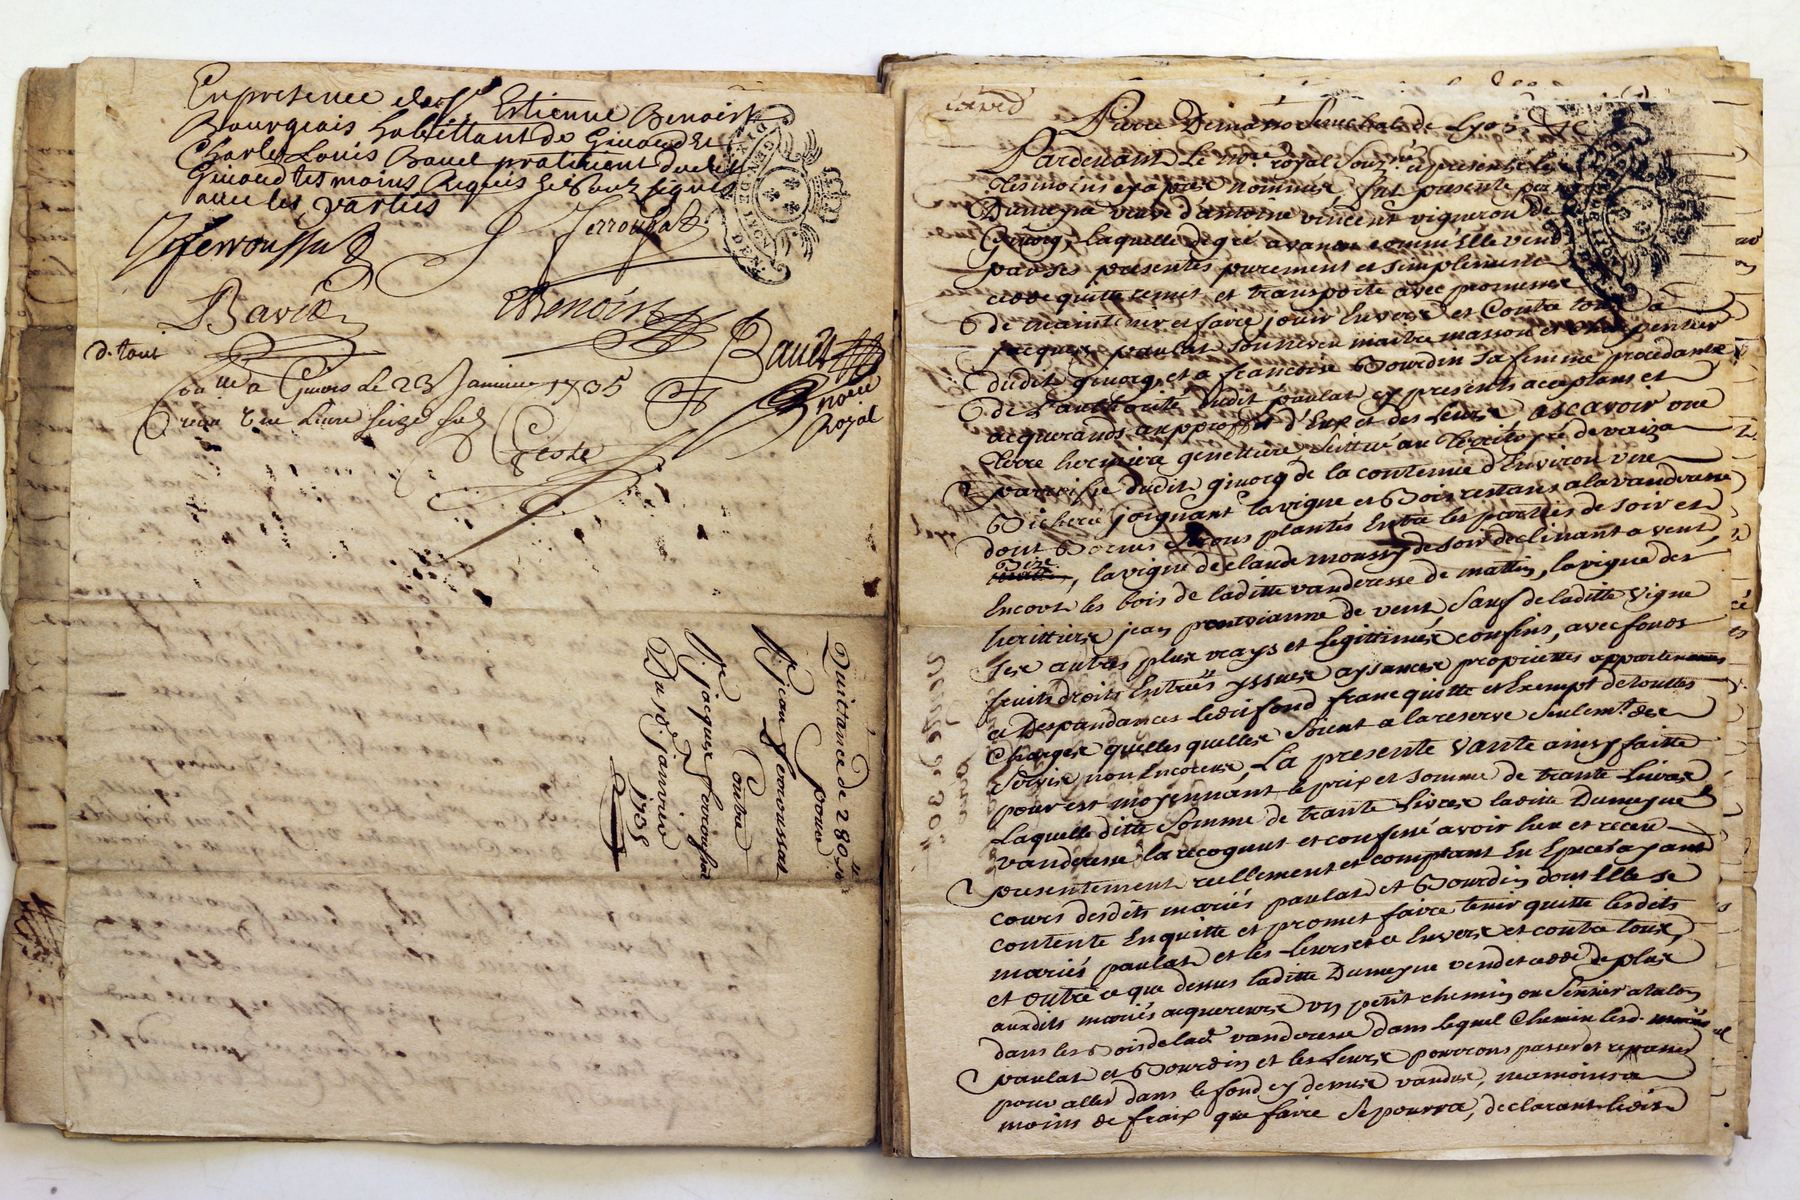 En presence de Sr Estienne Benoist
Bourgeois habittant de Givord Et
Charles Louis Bauet praticient dudit
Givord tesmoins Requis Et Soub signés
avec les parties
Jferroussat
J ferroussat
Bavet
EBenoist
Bault
d. tout
à Givors le 23 Janvier 1735
une Livre seize sols
Geste
nore
Royal
Quittance de 280
pour
jean ferroussat
Contre
jacques ferroussat
Du janvier
1735
GEN DE LYON
Pardevant Le nore royal Soub.né et presents les
tesmoins cy apres nommés fut presente
Dumeyne veuve d'antoine vincent vigneron de
Givorg, laquelle de gré a vandu comm'Elle vend
par ses presentes purement et simplement
cedde quitte remet et transporte avec promesse
de maintenir et faire jouir Envers et Contre tous a
jacques paulat son neveu maitre masson et charpentier
dudit givorg, et a francoise Bourdin sa femme procedante
de L'authorité dudit paulat cy presents acceptans et
acquerands au proffit d'Eux et des Leurs ascavoir une
terre hermiere genettiere Scittué au Territoire de
parroisse dudit givorg de la contenue d'Environ une
Bicherée joignant la vigne et Bois restans a la vanderesse
dont Bornes seront plantés Entre les parties de soir et
Bize, la vigne de claude moussy de soir declinant a vent,
Encore les bois de laditte vanderesse de mattin, la vigne des
herittiers jean pontvianne de vent, Sauf de laditte Vigne
ses autres plus vrays et legittimes confins, avec fonds
fruits droits Entrées yssues aysances proprietes appartenances
et Despandances ledit fond franc quitte et Exempt de touttes
Charges quelles quelles Soient a la reserve Seulemt des
Servis non Encoreus, La presente Vante ainsy faitte
pour et moyennant le prix et Somme de trante Livres
Laquelle ditte Somme de trante Livres ladite Dumeyne
vanderesse la recognut et confessé avoir heu et receu
presentement reellement et comptant En Epeces ayant
cours desdits mariés paulat et Bourdin dont Elle se
contente En quitte et promet faire tenir quitte lesdits
mariés paulat et les leurs et ce Envers et contre tous,
et outre ce que dessus laditte Dumeyne vend et cedde de plus
auxdits mariés acquereurs un petit chemin ou Sentier a talon
dans les Bois de lad. vanderesse dans lequel Chemin lesd.
paulat et Bourdin et les Leurs pourrons passer et repasser
pour aller dans le fond cy dessus vandus,
moins de fraix que faire Se pourra, declarant ledit